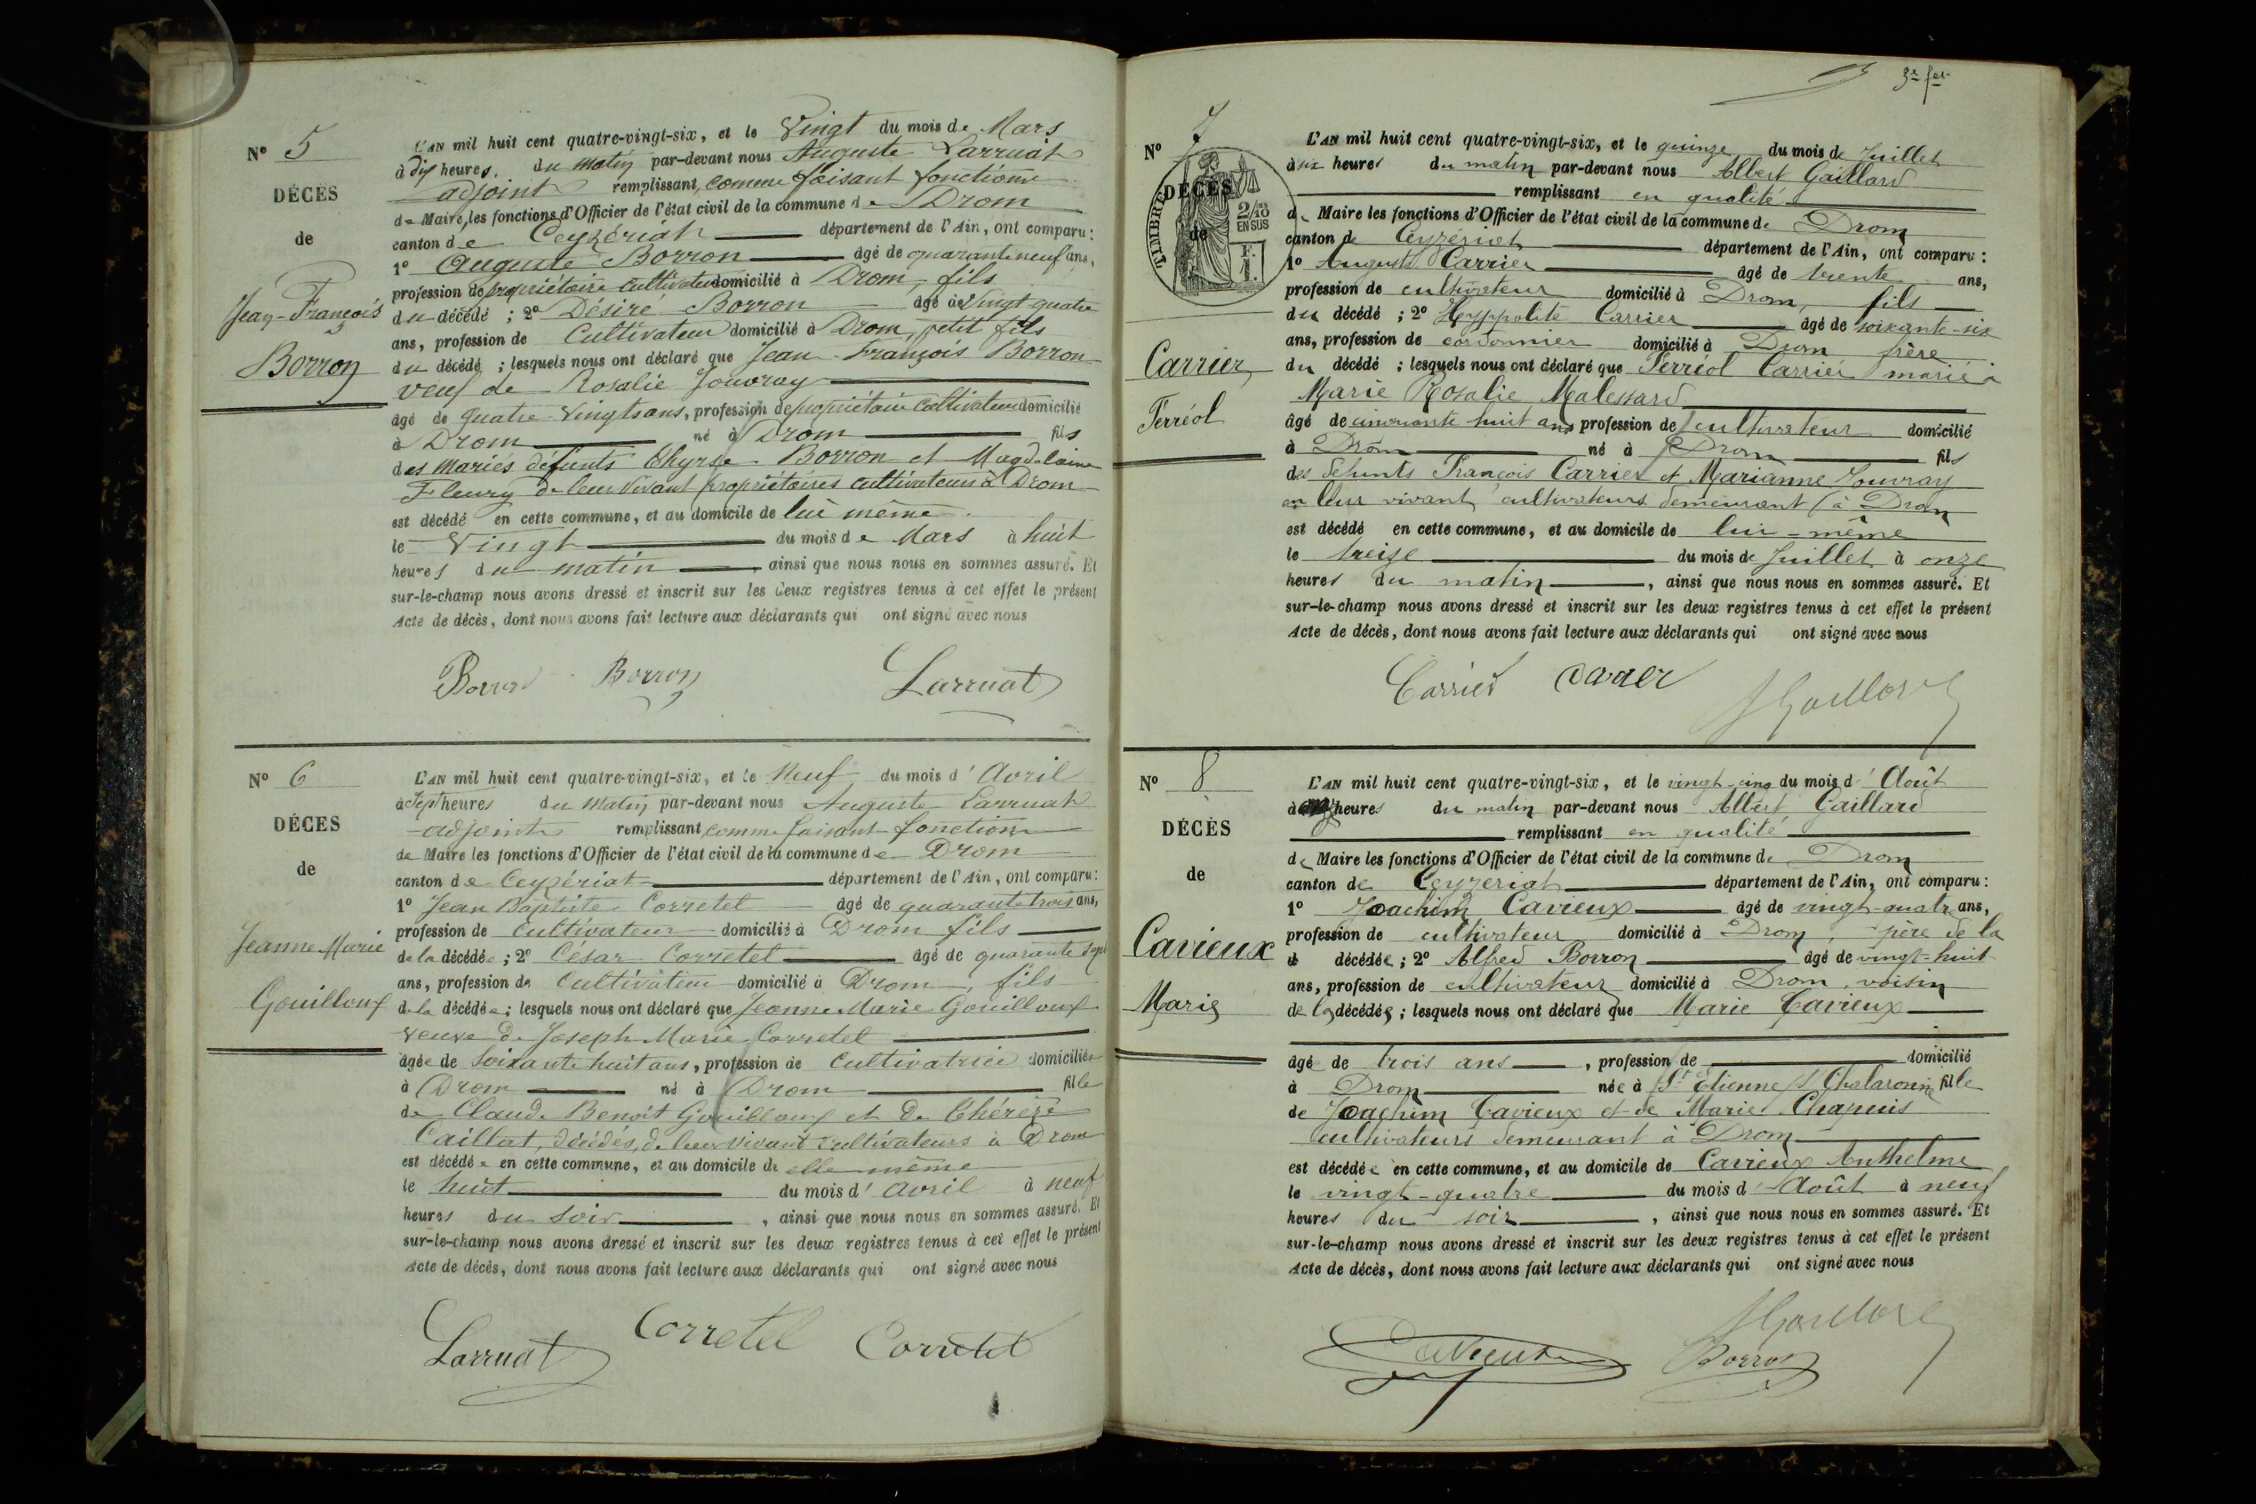 Nº 5
DÉCÈS
de
Jean-François
Borron
L'AN mil huit cent quatre-vingt-six, et le Vingt du mois de Mars
à dix heures du matin par-devant nous Auguste Larruat
adjoint remplissant, comme faisant fonctions
de Maire, les fonctions d'Officier de l'état civil de la commune de Drom
canton de Ceyzériat département de l'Ain, ont comparu:
1º Auguste Borron âgé de quarante neuf ans,
profession de propriétaire cultivateur domicilié à Drom, fils
du décédé ; 2º Désiré Borron âgé de Vingt quatre
ans, profession de Cultivateur domicilié à Drom, petit fils
du décédé ; lesquels nous ont déclaré que Jean-François Borron
veuf de Rosalie Jouvray
âgé de quatre-Vingts ans, profession de propriétaire cultivateur domicilié
à Drom né à Drom fils
des mariés défunts Thyrse Borron et Magdelaine
Fleury de leur Vivant propriétaires cultivateurs à Drom
est décédé en cette commune, et au domicile de lui même
le Vingt du mois de Mars à huit
heures du matin, ainsi que nous nous en sommes assuré. Et
sur-le-champ nous avons dressé et inscrit sur les deux registres tenus à cet effet le présent
Acte de décès, dont nous avons fait lecture aux déclarants qui ont signé avec nous
Borron Borron Larruat
Nº 6
DÉCÈS
de
Jeanne Marie
Gouilloux
L'AN mil huit cent quatre-vingt-six, et le Neuf du mois d'Avril
à Sept heures du Matin par-devant nous Auguste Larruat
adjoint remplissant comme faisant fonctions
de Maire les fonctions d'Officier de l'état civil de la commune de Drom
canton de Ceyzériat département de l'Ain, ont comparu:
1º Jean Baptiste Corretel âgé de quarante trois ans,
profession de Cultivateur domicilié à Drom fils
de la décédée ; 2º César Corretel âgé de quarante sept
ans, profession de Cultivateur domicilié à Drom, fils
de la décédée ; lesquels nous ont déclaré que Jeanne Marie Gouilloux
veuve de Joseph Marie Corretel
âgée de Soixante huit ans, profession de Cultivatrice domiciliée
à Drom né à Drom fille
de Claude Benoit Gouilloux et de Thérèze
Caillat, décédés, de leur vivant cultivateurs à Drom
est décédée en cette commune, et au domicile de elle même
le huit du mois d'Avril à neuf
heures du Soir, ainsi que nous nous en sommes assuré. Et
sur-le-champ nous avons dressé et inscrit sur les deux registres tenus à cet effet le présent
Acte de décès, dont nous avons fait lecture aux déclarants qui ont signé avec nous
Larruat Corretel Corretel
Nº 7
DÉCÈS
de
TIMBRE
2/10 EN SUS
F. 1.
Carrier
Ferréol
L'AN mil huit cent quatre-vingt-six, et le quinze du mois de Juillet
à six heures du matin par-devant nous Albert Gaillard
remplissant en qualité
de Maire les fonctions d'Officier de l'état civil de la commune de Drom
canton de Ceyzériat département de l'Ain, ont comparu:
1º Auguste Carrier âgé de trente ans,
profession de cultivateur domicilié à Drom, fils
du décédé ; 2º Hyppolite Carrier âgé de soixante-six
ans, profession de cordonnier domicilié à Drom frère
du décédé ; lesquels nous ont déclaré que Ferréol Carrier marié à
Marie Rosalie Malessard
âgé de cinquante huit ans profession de cultivateur domicilié
à Drom né à Drom fils
des défunts François Carrier et Marianne Jouvray
en leur vivant cultivateurs demeurant à Drom
est décédé en cette commune, et au domicile de lui-même
le treize du mois de Juillet à onze
heures du matin, ainsi que nous nous en sommes assuré. Et
sur-le-champ nous avons dressé et inscrit sur les deux registres tenus à cet effet le présent
Acte de décès, dont nous avons fait lecture aux déclarants qui ont signé avec nous
Carrier Carrier AGaillard
Nº 8
DÉCÈS
de
Cavieux
Marie
L'AN mil huit cent quatre-vingt-six, et le vingt-cinq du mois d'Août
à heures du matin par-devant nous Albert Gaillard
remplissant en qualité
de Maire les fonctions d'Officier de l'état civil de la commune de Drom
canton de Ceyzeriat département de l'Ain, ont comparu:
1º Joachim Cavieux âgé de vingt-quatre ans,
profession de cultivateur domicilié à Drom, père de la
décédée ; 2º Alfred Borron âgé de vingt-huit
ans, profession de cultivateur domicilié à Drom, voisin
de la décédée ; lesquels nous ont déclaré que Marie Cavieux
âgé de trois ans, profession de domicilié
à Drom née à St Etienne s/ Chalaronne fille
de Joachim Cavieux et de Marie Chapuis
cultivateurs demeurant à Drom
est décédée en cette commune, et au domicile de Cavieux Anthelme
le vingt-quatre du mois d'Août à neuf
heures du soir, ainsi que nous nous en sommes assuré. Et
sur-le-champ nous avons dressé et inscrit sur les deux registres tenus à cet effet le présent
Acte de décès, dont nous avons fait lecture aux déclarants qui ont signé avec nous
Cavieux AGaillard
Borron